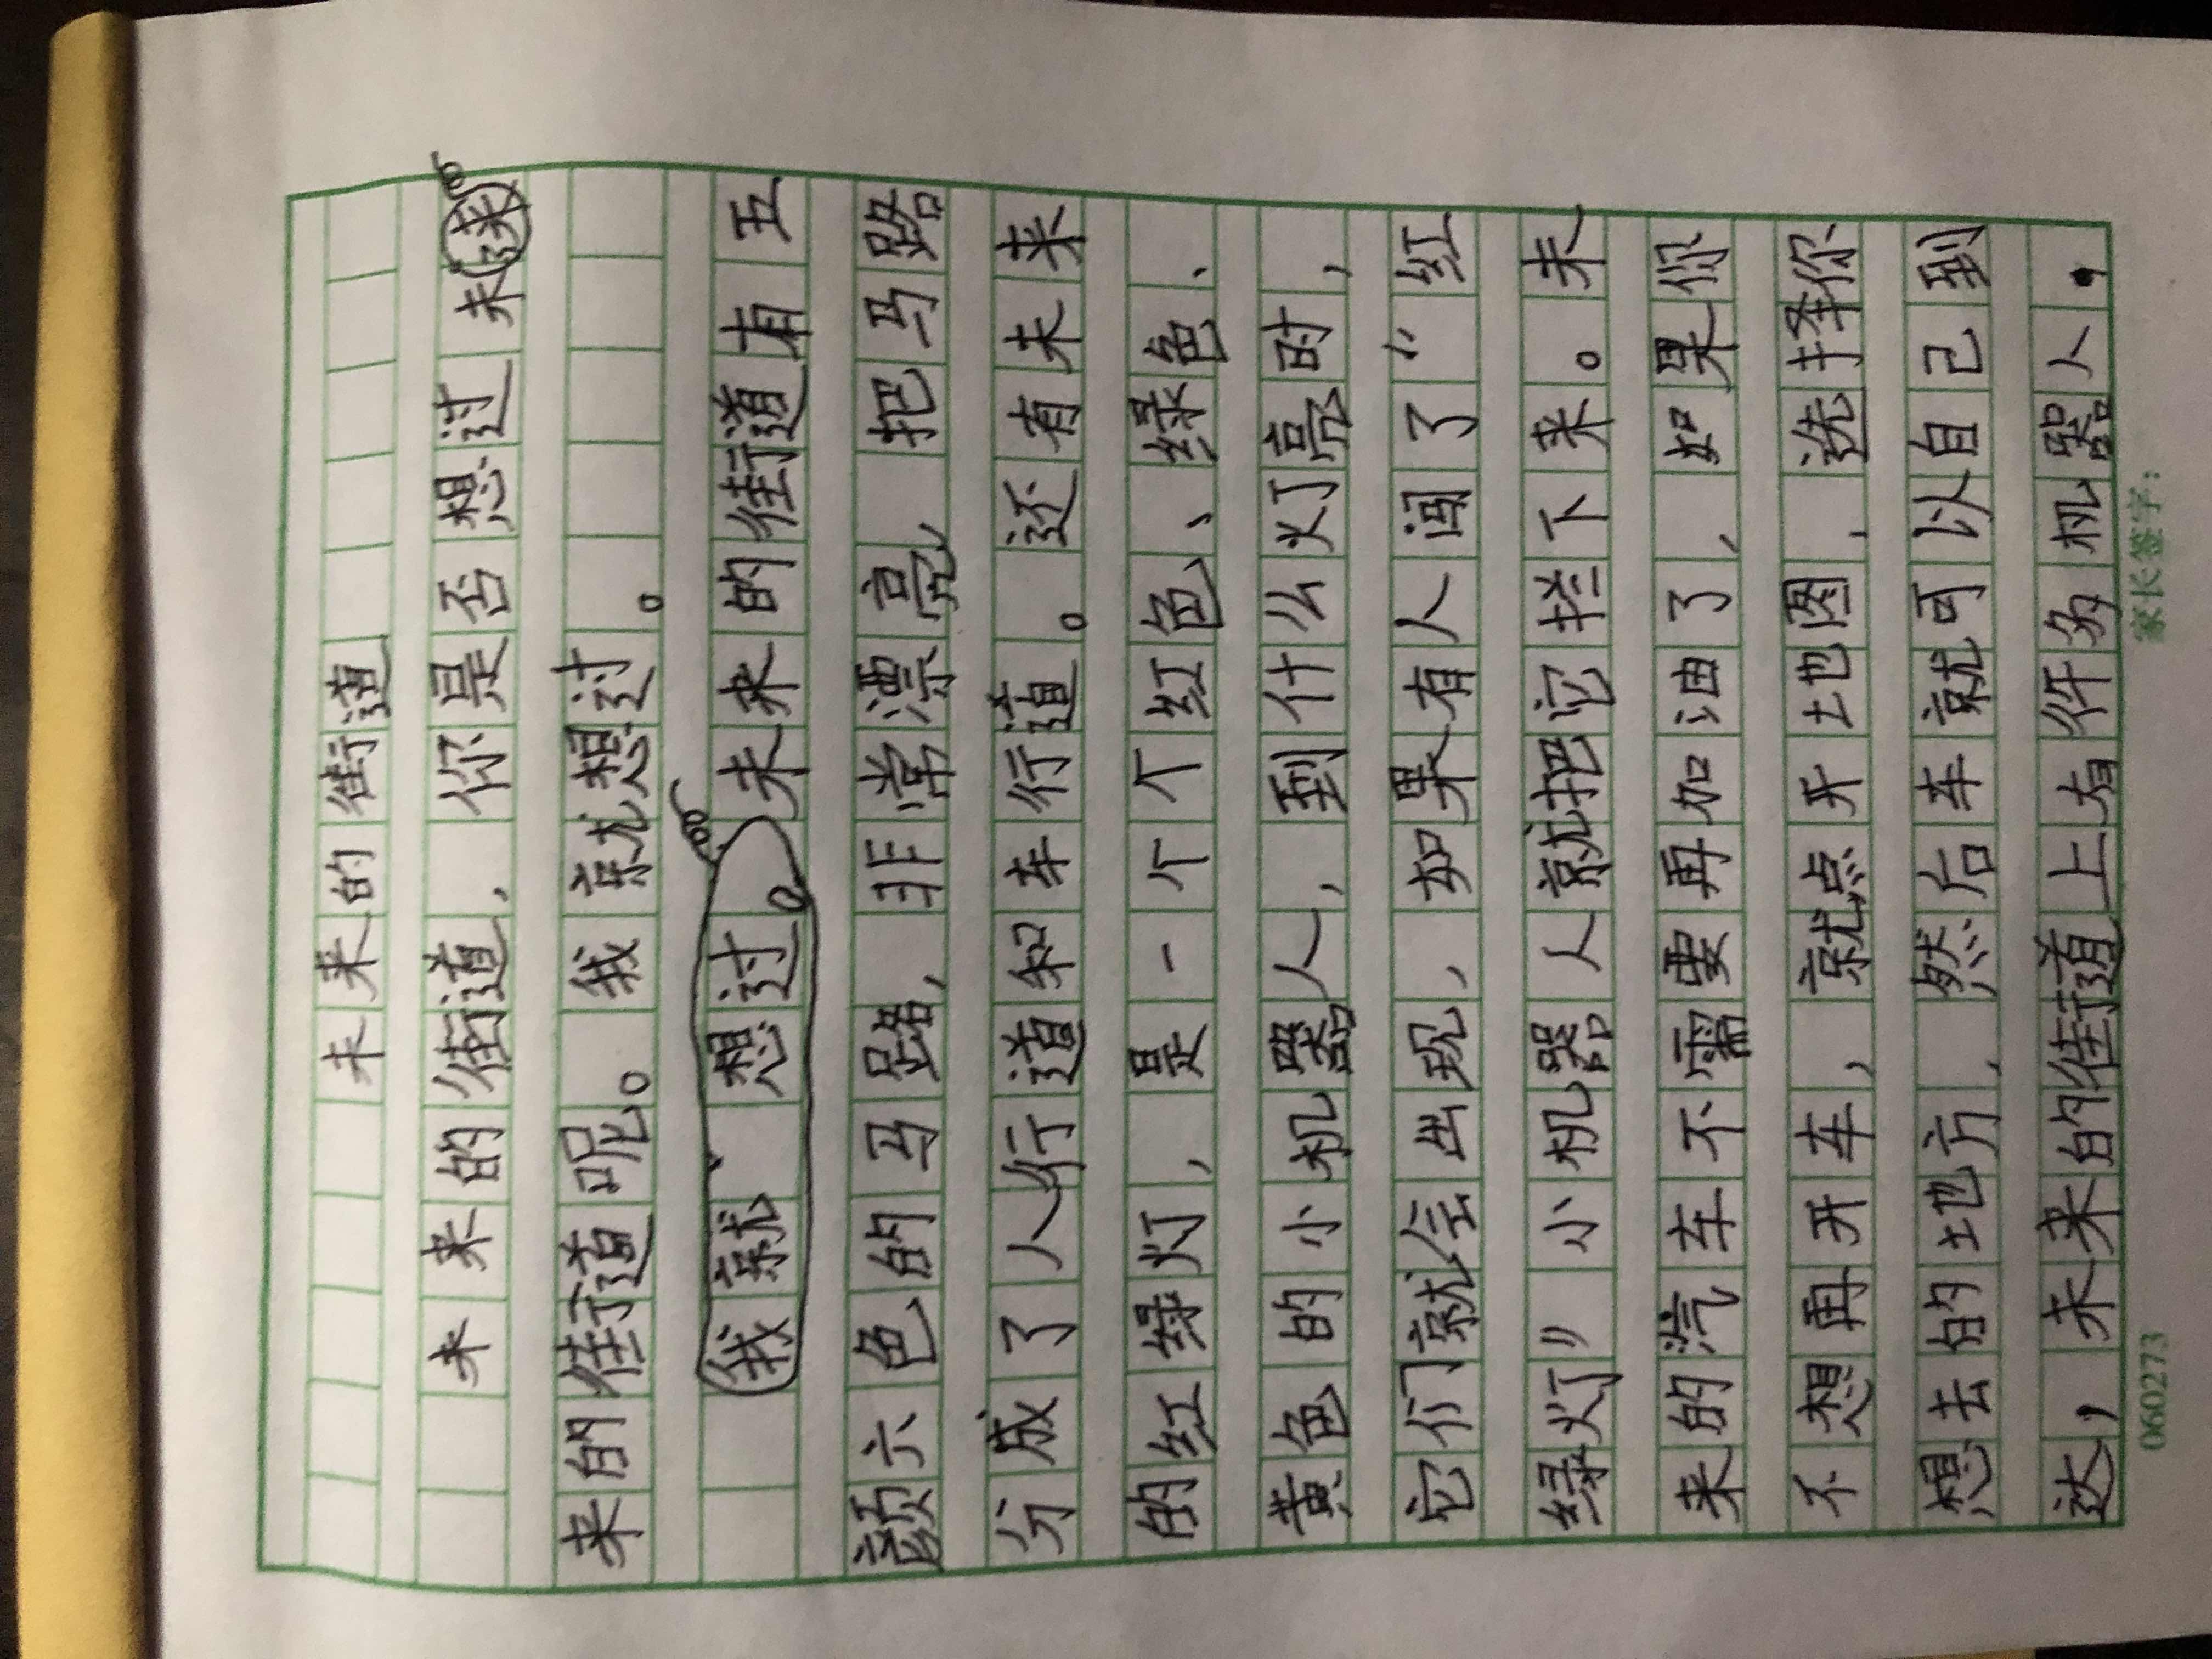 未来的街道
未来的街道，你是否想过未来
来的街道呢。我就想过。
我就、想过。未来的街道有五
颜六色的马路，非常漂亮，把马路
分成了人行道和车行道。还有未来
的红绿灯，是一个个红色、绿色、
黄色的小机器人，到什么灯亮时，
它们就会出现，如果有人闯了“红
绿灯”小机器人就把它拦下来。未
来的汽车不需要再加油了，如果你
不想再开车，就点开地图，选择你
想去的地方，然后车就可以自己到
达，未来的街道上有许多机器人，
060273 家长签字：